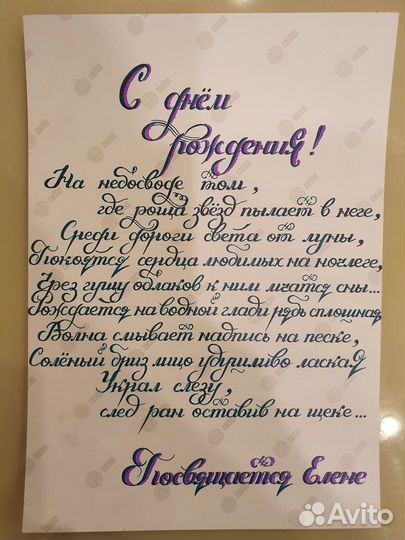 С днём
рождения!
На небосводе том,
где роща звёзд пылает в неге,
Среди дороги света от луны,
Покоятся сердца любимых на ночлеге,
Чрез гущу облаков к ним мчатся сны...
Рождается на водной глади рябь сплошная,
Волна смывает надпись на песке,
Солёный бриз лицо удушливо лаская
Украл слезу,
след ран оставив на щеке...
Посвящается Елене
Avito